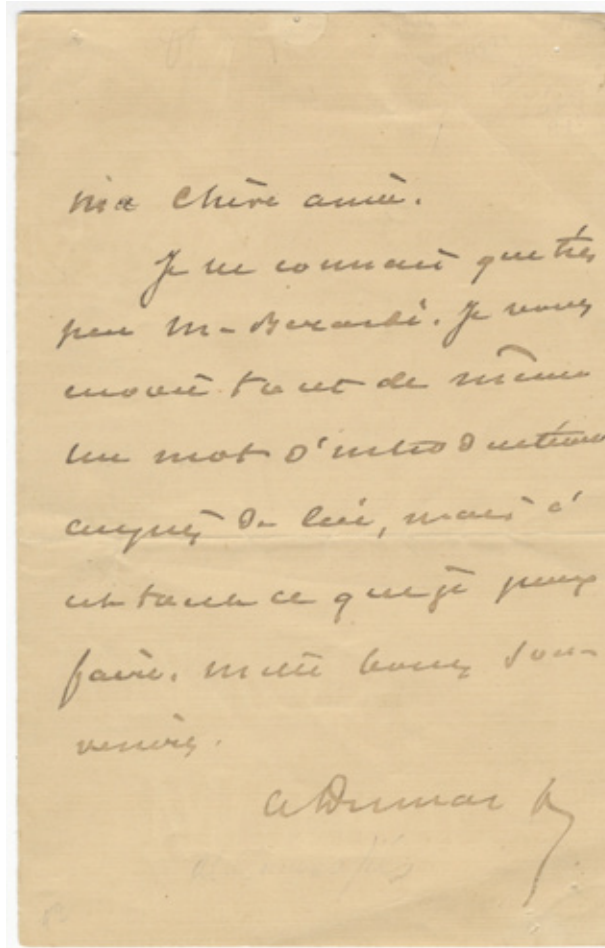 Ma Chère amie.
Je ne connais que très
peu M. Berardi. Je vous
envoie tout de même
un mot d'introduction
auprès de lui, mais c'
est tout ce que je peux
faire. Mille bons sou-
venirs.
A Dumas f